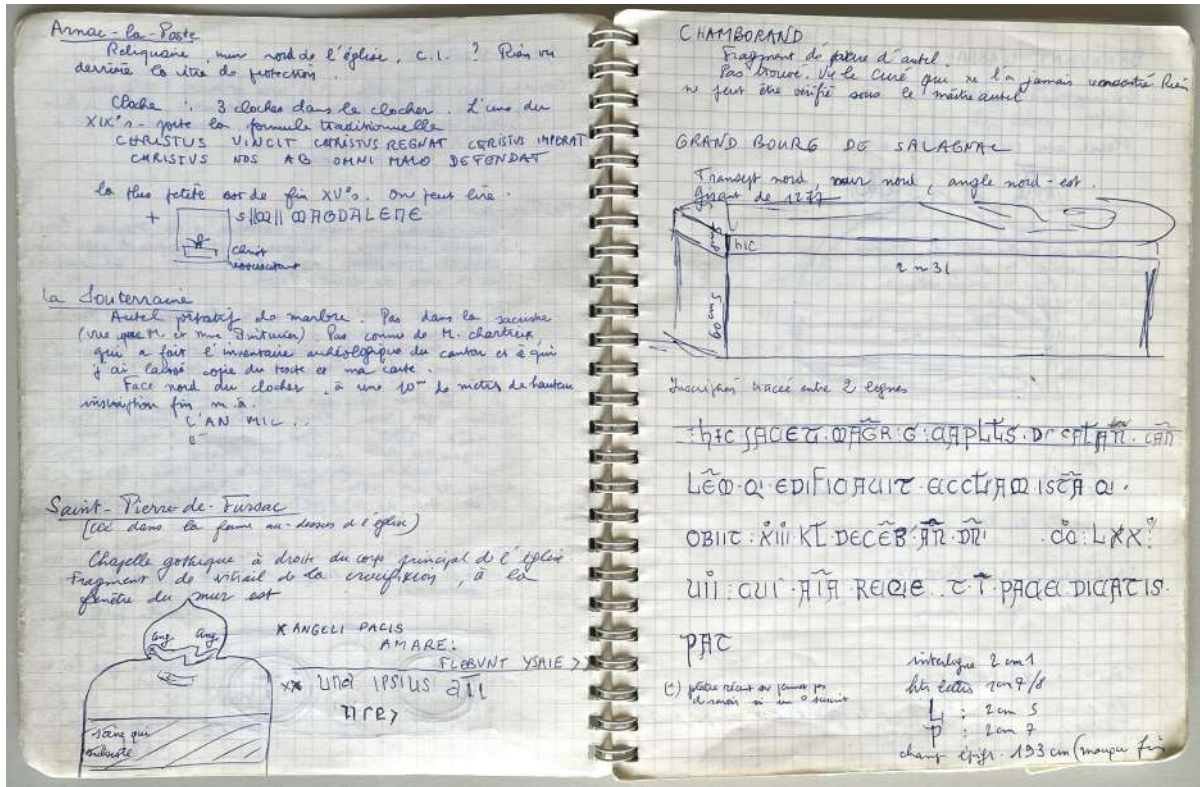 Arnac-la-Poste
Reliquaire, mur nord de l'église, c.l. ? Rien vu
derrière la vitre de protection.
Cloche : 3 cloches dans le clocher. L'une du
XIX°s. porte la formule traditionnelle
CHRISTUS VINCIT CHRISTUS REGNAT CHRISTUS IMPERAT
CHRISTUS NOS AB OMNI MALO DEFENDAT
la plus petite est de fin XV°s. On peut lire.
+ S MAGDALENE
christ
ressuscitant
La Souterraine
Autel portatif de marbre. Pas dans la sacristie
(vue par M. et Mme). Pas connu de M.
qui a fait l'inventaire archéologique du canton et à qui
j'ai laissé copie du texte et ma carte.
Face nord du clocher, à une 10ne de mètres de hauteur
inscription fin m.a.
L'AN MIL..
Saint-Pierre-de-Fursac
(clé dans la ferme au-dessus de l'église)
Chapelle gothique à droite du corps principal de l'église
Fragment de vitrail de la crucifixion, à la
fenêtre du mur est
ang ang
X ANGELI PACIS
AMARE:
FLEBVNT YSAIE
XX una IPSIUS
scène qui
subsiste
CHAMBORAND
Fragment de pierre d'autel.
Pas trouvé. Vu le Curé qui ne l'a jamais rencontré. Rien
ne peut être vérifié sous le maître autel
GRAND BOURG DE SALAGNAC
Transept nord, mur nord, angle nord-est.
Gisant de 1277
hIC
2 m 31
60 cm 5
Inscription tracée entre 2 lignes
: hIC JACET : MAGR : G : CAPLLS . DE
LEM . QI . EDIFICAUIT ECCLIAM ISTA QI .
OBIIT : XIII KL DECEB AN DNI . CC : LXX
UII : CUI AIA REQIE .. T I PACE DICATIS .
PAT
interligne 2 cm 1
htr lettres 2 cm 7/8
L : 2 cm 5
P : 2 cm 7
champ épigr. 193 cm (manque fin